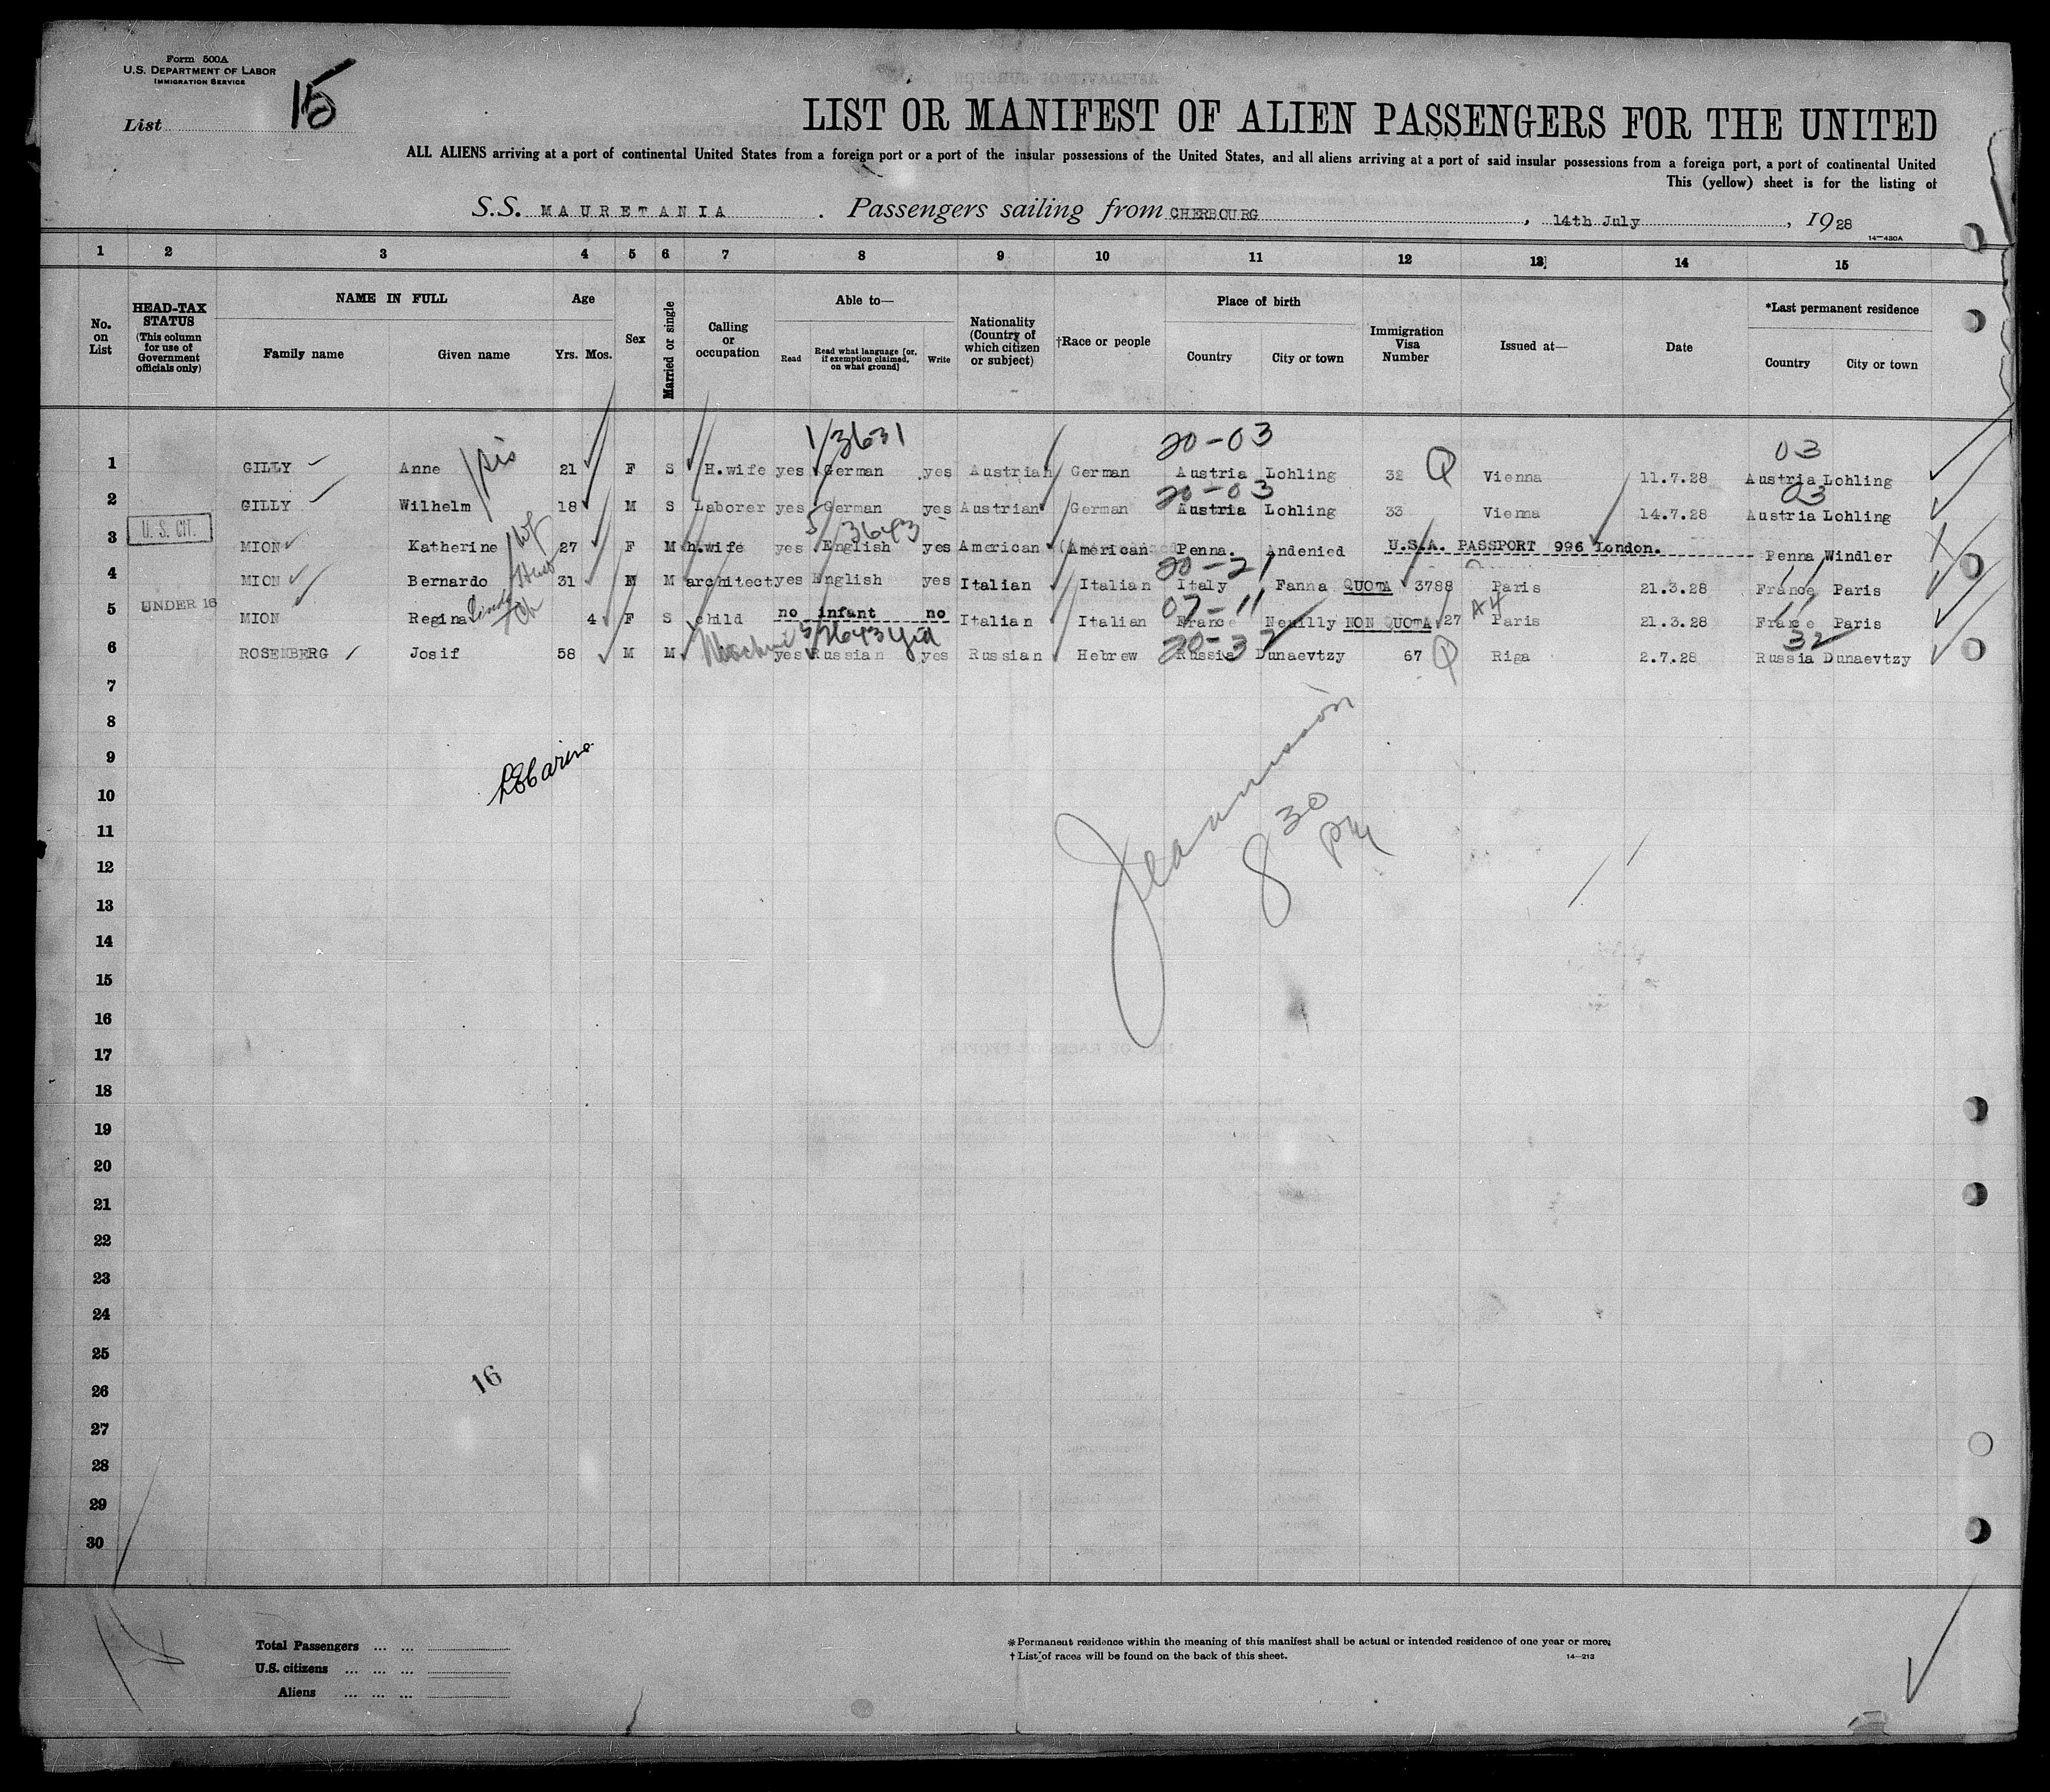 Form 500A
U.S. DEPARTMENT OF LABOR
IMMIGRATION SERVICE
List 15
LIST OR MANIFEST OF ALIEN PASSENGERS FOR THE UNITED
ALL ALIENS arriving at a port of continental United States from a foreign port or a port of the insular possessions of the United States, and all aliens arriving at a port of said insular possessions from a foreign port, a port of continental United
This (yellow) sheet is for the listing of
S.S. MAURETANIA. Passengers sailing from CHERBOURG, 14th July, 1928
14—430A
1 2 3 4 5 6 7 8 9 10 11 12 13 14 15
No. on List
HEAD-TAX STATUS (This column for use of Government officials only)
NAME IN FULL
Family name Given name
Age
Yrs. Mos.
Sex
Married or single
Calling or occupation
Able to—
Read
Read what language [or, if exemption claimed, on what ground]
Write
Nationality (Country of which citizen or subject)
†Race or people
Place of birth
Country City or town
Immigration Visa Number
Issued at—
Date
*Last permanent residence
Country City or town
1/3631 20-03 03
1 GILLY Anne sis 21 F S H.wife yes German yes Austrian German Austria Lohling 32 Q Vienna 11.7.28 Austria Lohling
20-03 03
2 GILLY Wilhelm 18 M S Laborer yes German yes Austrian German Austria Lohling 33 Vienna 14.7.28 Austria Lohling
U.S. CIT. 5/3643
3 MION Katherine wf 27 F M h.wife yes English yes American American Penna. Andenied U.S.A. PASSPORT 996 London. Penna Windler
20-21
4 MION Bernardo 31 M M architect yes English yes Italian Italian Italy Fanna QUOTA 3788 Paris 21.3.28 France Paris
07-11 11
5 UNDER 16 MION Regina ch 4 F S child no infant no Italian Italian France Neuilly NON QUOTA 27 A4 Paris 21.3.28 France Paris
5/3643 Yid 20-32 32
6 ROSENBERG Josif 58 M M yes Russian yes Russian Hebrew Russia Dunaevtzy 67 Q Riga 2.7.28 Russia Dunaevtzy
7
8
9
10
11
12
13
14
15
16
17
18
19
20
21
22
23
24
25
26
27
28
29
30
8 30 PM
16
Total Passengers ... ...
U.S. citizens ... ... ...
Aliens ... ... ...
*Permanent residence within the meaning of this manifest shall be actual or intended residence of one year or more.
† List of races will be found on the back of this sheet.
14—213